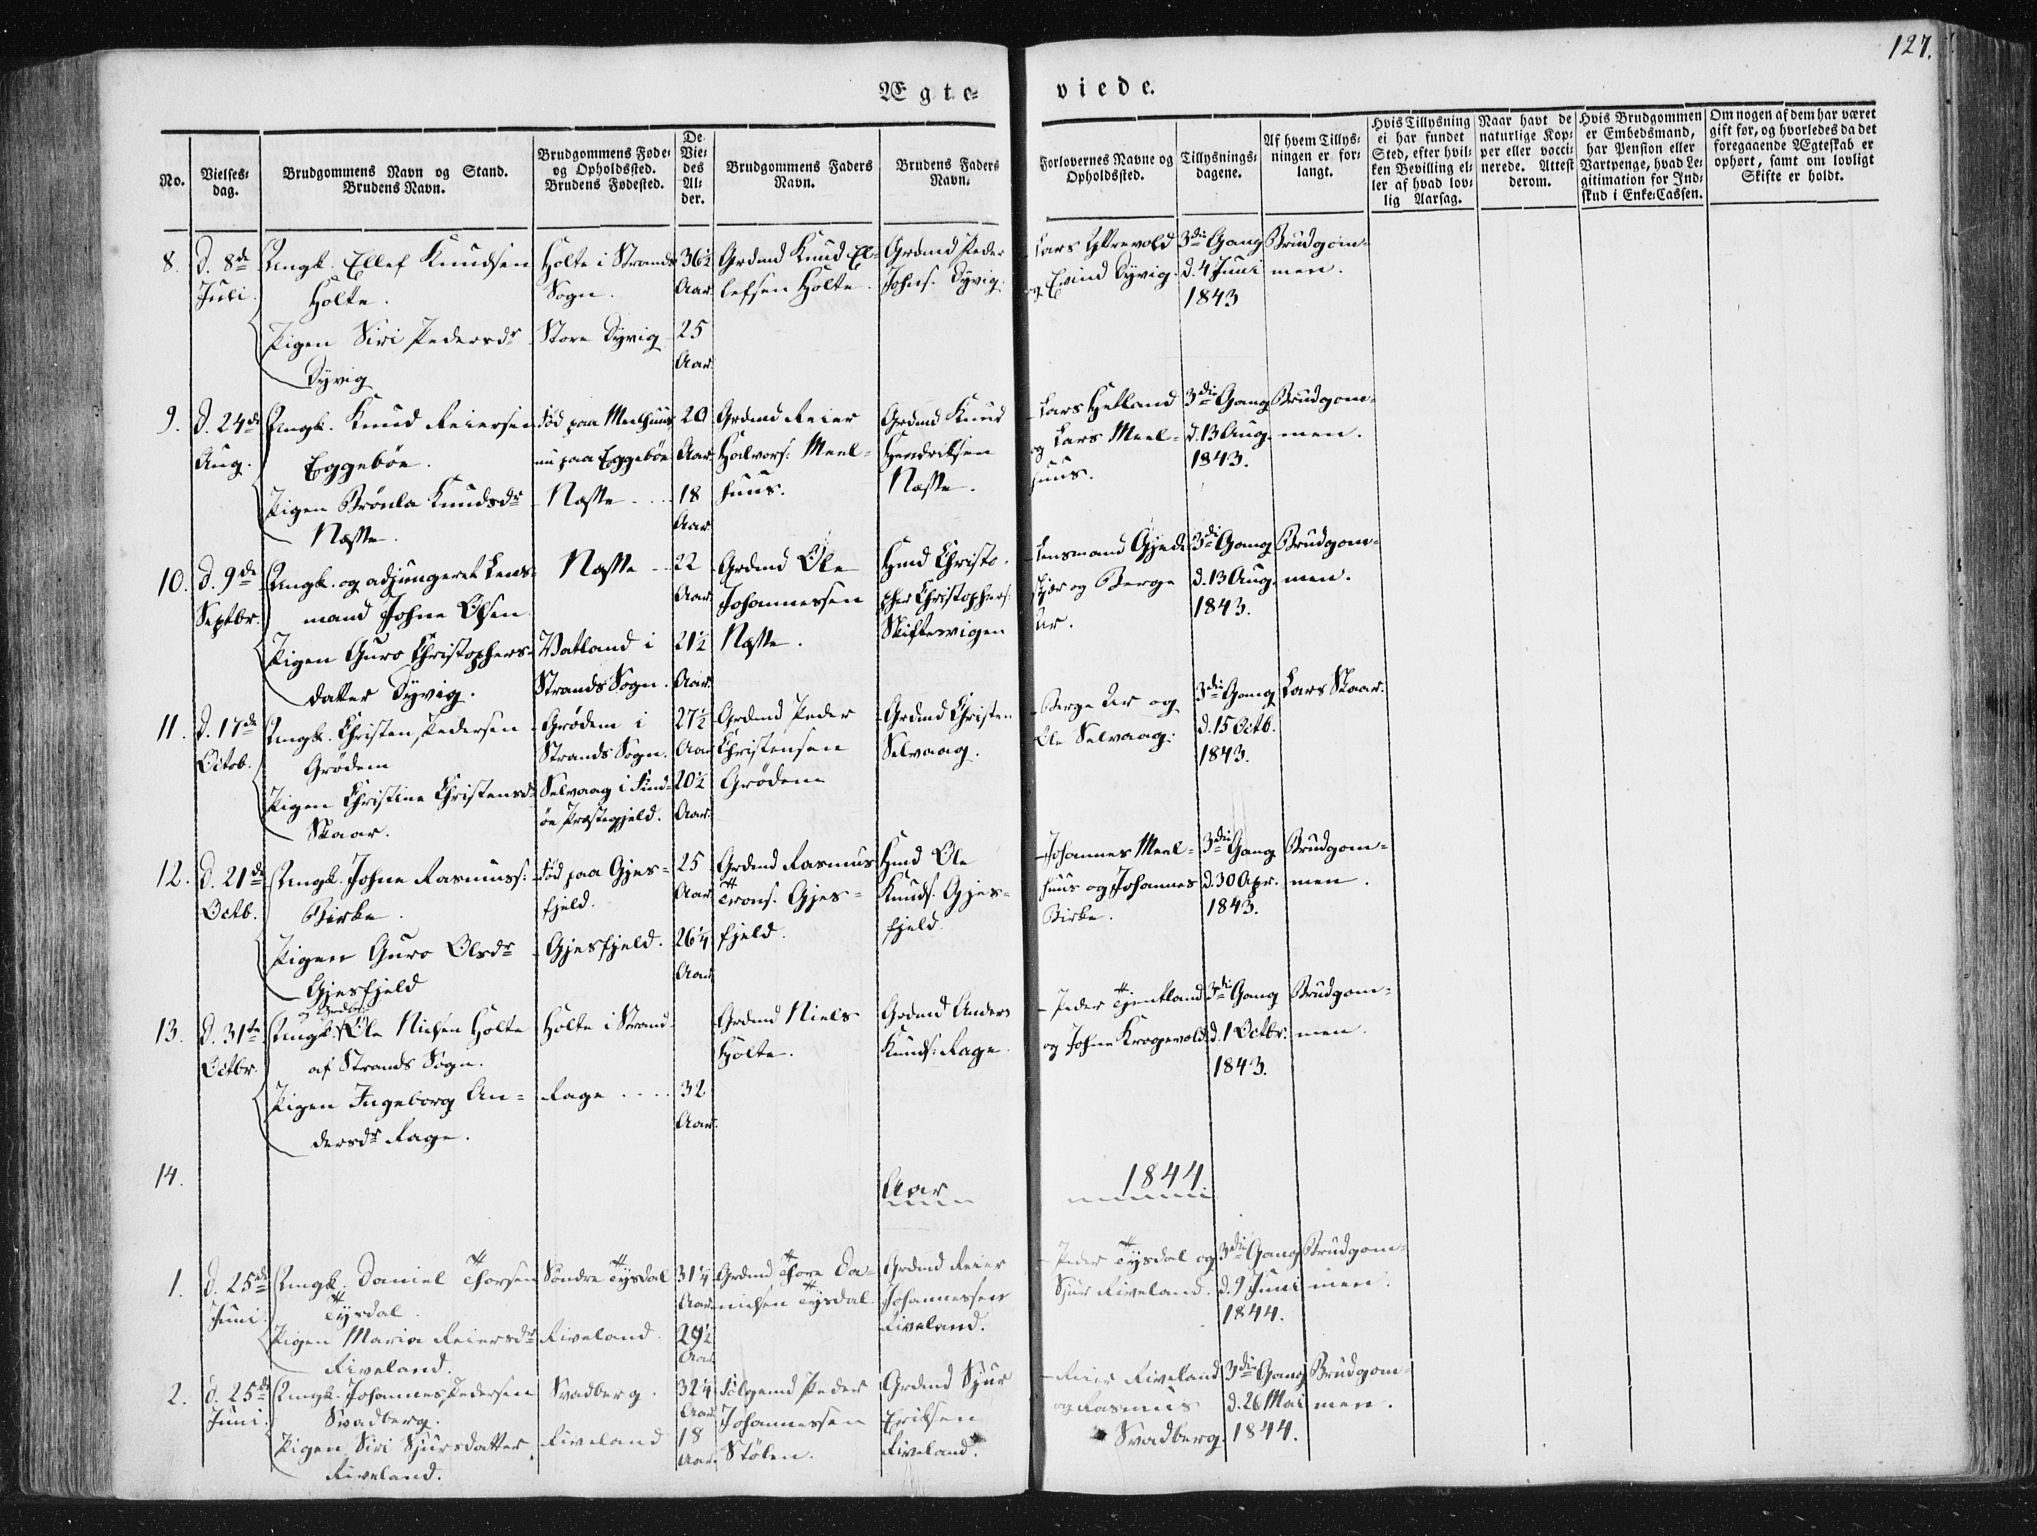 127.
Ægte-
viede.
No.
Vielses-
dag.
Brudgommens Navn og Stand.
Brudens Navn.
Brudgommens Føde-
og Opholdssted.
Brudens Fødested.
De
Vie-
des
Al-
der.
Brudgommens Faders
Navn.
Brudens Faders
Navn.
Forlovernes Navne og
Opholdssted.
Tillysnings-
dagene.
Af hvem Tillys-
ningen er for-
langt.
Hvis Tillysning
ei har fundet
Sted, efter hvil-
ken Bevilling el-
ler af hvad lov-
lig Aarsag.
Naar havt de
naturlige Kop-
per eller vacci-
nerede. Attest
derom.
Hvis Brudgommen
er Embedsmand,
har Pension eller
Vartpenge, hvad Le-
gitimation for Ind-
skud i Enke-Cassen.
Om nogen af dem har været
gift før, og hvorledes da det
foregaaende Ægteskab er
ophørt, samt om lovligt
Skifte er holdt.
8.
d. 8de
Juli.
Ungk. Ellef Knudsen
Holte.
Pigen Siri Pedersdr
Dyvig
Holte i Strands
Sogn.
Store Dyvig
36½
Aar
25
Aar.
Grdmd Knud El-
lefsen Holte
Grdmd Peder
Johns. Dyvig.
Lars Ytrevold
og Eivind Dyvig.
3die Gang
d. 4 Juni
1843
Brudgom-
men.
9.
d. 24de
Aug.
Ungk. Knud Reiersen
Eggebøe.
Pigen Brønla Knudsdr
Næsse.
Fød paa Meelhuus
nu paa Eggebøe
Næsse
20
Aar
18
Aar
Grdmd Reier
Halvors: Meel-
huus.
Grdmd Knud
Hendriksen
Næsse.
Lars Helland
og Lars Meel-
huus.
3die Gang
d. 13 Aug.
1843.
Brudgom-
men.
10.
d. 9de
Septbr.
Ungk. og adjungeret Lens-
mand Johne Olsen
Pigen Guro Christophers-
datter Dyvig.
Næsse
Vatland i
Strands Sogn.
22
Aar
21½
Aar.
Grdmd Ole
Johannessen
Næsse.
Hmd Christo-
pher Christophers:
Skiftesvigen
Lensmand Gjede
og Berge
Ur.
3die Gang
d. 13 Aug.
1843.
Brudgom-
men.
11.
d. 17de
Octob.
Ungk. Christen Pedersen
Grødem
Pigen Christine Christensd.
Skaar.
Grødem i
Strands Sogn.
Selvaag i Find-
øe Præstegjeld.
27½
Aar
20½
Aar.
Grdmd Peder
Christensen
Grødem
Grdmd Christen
Selvaag.
Berge Ur og
Ole Selvaag.
3die Gang
d. 15 Octb.
1843.
Lars Skaar.
12.
d. 21de
Octb.
Ungk. Johne Rasmuss:
Birke
Pigen Guro Olsdr
Gjesfjeld
Fød paa Gjes-
fjeld.
Gjesfjeld.
25
Aar
26¼
Aar
Grdmd Rasmus
Trons. Gjes-
fjeld.
Hmd Ole
Knuds. Gjes-
fjeld.
Johannes Meel-
huus og Johannes
Birke.
3die Gang
d. 30 Apr.
1843.
Brudgom-
men.
13.
d. 31te
Octbr
Ungk. Ole Nielsen Holte
af Strands Sogn.
Pigen Ingeborg An-
dersdr Rage.
Holte i Strand.
Rage
32
Aar.
Grdmd Niels
Holte.
Grdmd Anders
Knuds: Rage.
Peder Tjentland
og Johne Krogevold
3die Gang
d. 1 Octbr.
1843.
Brudgom-
men.
14.
Aar
1844.
1.
d. 25de
Juni.
Ungk. Daniel Thorsen
Tysdal.
Pigen Maria Reiersdr
Riveland.
Søndre Tysdal
Riveland.
31¼
Aar
29½
Aar
Grdmd Thore Da-
nielsen Tysdal
Grdmd Reier
Johannessen
Riveland.
Peder Tysdal og
Sjur Riveland.
3die Gang
d. 9 Juni
1844.
Brudgom-
men.
2.
d. 25de
Juni.
Ungk. Johannes Pedersen
Svadberg.
Pigen Siri Sjursdatter
Riveland.
Svadberg.
Riveland
32¼
Aar
18
Aar.
Følgemd Peder
Johannessen
Stølen.
Grdmd Sjur
Eriksen
Riveland.
Reier Riveland
og Rasmus
Svadberg.
3die Gang
d. 26 Mai
1844.
Brudgom-
men.